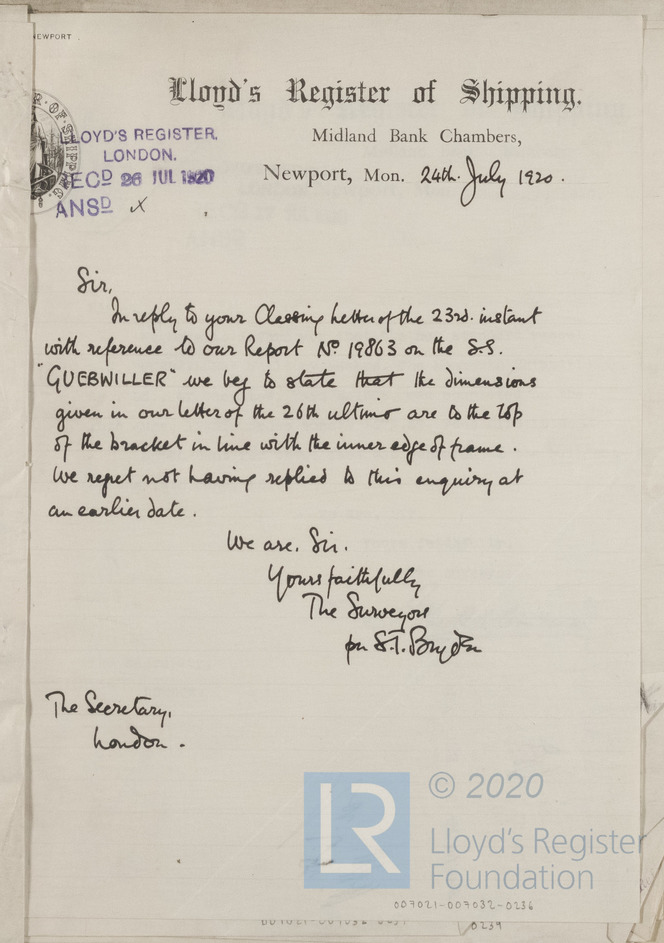 NEWPORT
Lloyd's Register of Shipping.
Midland Bank Chambers,
Newport, Mon. 24th. July 1920.
LLOYD'S REGISTER.
LONDON.
RECD 26 JUL 1920
ANSD x
Sir,
In reply to your Classing Letter of the 23rd. instant
with reference to our Report No. 19863 on the S.S.
"GUEBWILLER" we beg to state that the dimensions
given in our letter of the 26th ultimo are to the top
of the bracket in line with the inner edge of frame.
We regret not having replied to this enquiry at
an earlier date.
We are, Sir.
Yours faithfully
The Surveyors
per S.T. Bryden
The Secretary,
London.
LR
© 2020
Lloyd's Register
Foundation
007021-007032-0236
0239